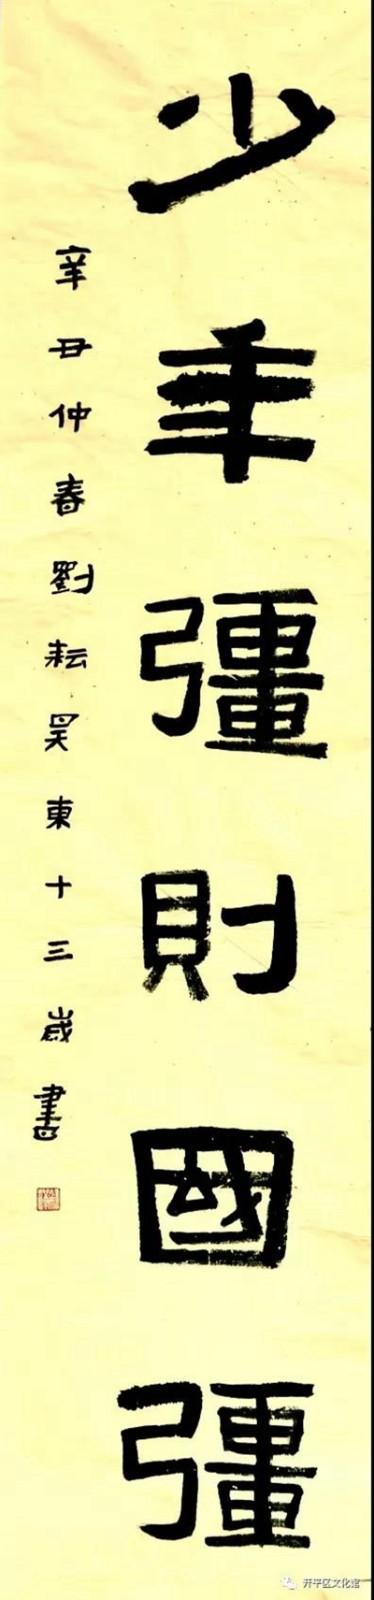 少年彊則國彊
辛丑仲春劉耘昊東十三歲書
开平区文化馆